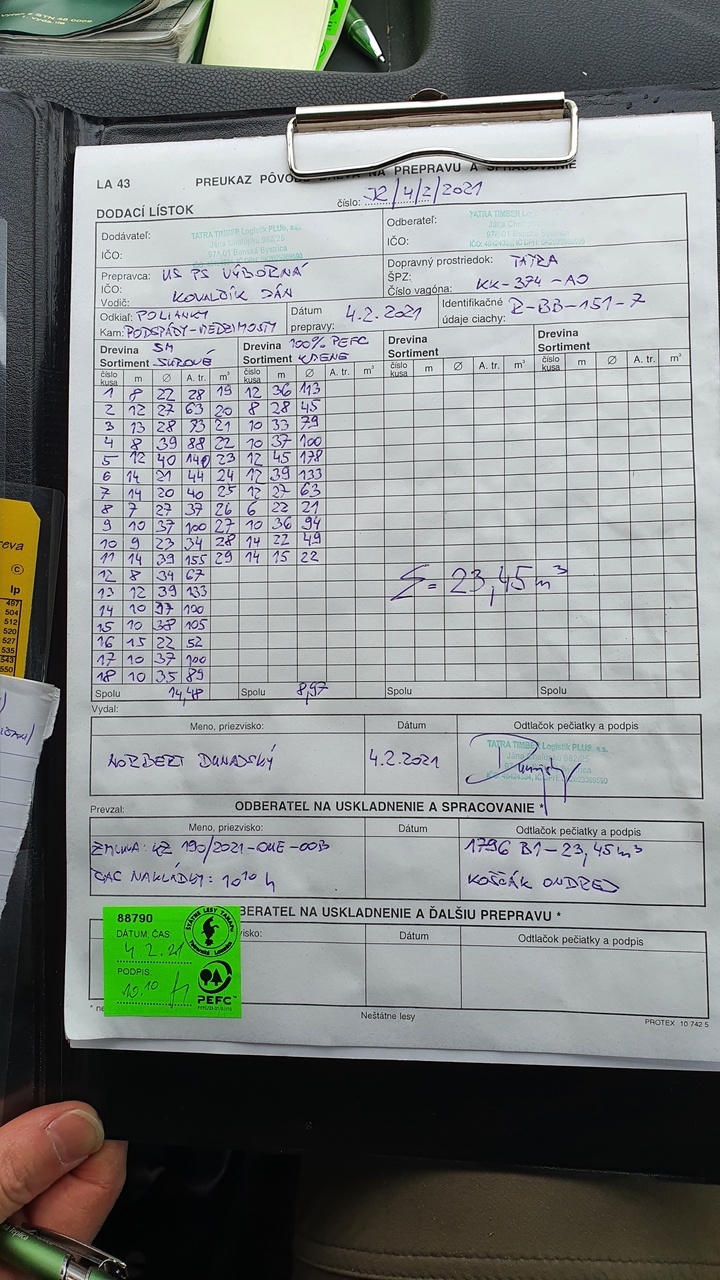 LA 43
PREUKAZ PÔVODU DREVA NA PREPRAVU A SPRACOVANIE
číslo: JZ/4/2/2021
DODACÍ LÍSTOK
Dodávateľ: TATRA TIMBER Logistik PLUS, a.s.
Jána Chalupku 982/25
IČO: 974 01 Banská Bystrica
Odberateľ: TATRA TIMBER
IČO:
Prepravca: US PS VÝBORNÁ
IČO:
Vodič: KOVALČÍK JÁN
Dopravný prostriedok: TATRA
ŠPZ:
Číslo vagóna: KK-374-AO
Odkiaľ: POLIANKY
Kam: PODSPÁDY-MEDZIMOSTY
Dátum prepravy: 4.2.2021
Identifikačné údaje ciachy: R-BB-151-7
Drevina SM Drevina 100% PEFC Drevina Drevina
Sortiment SUROVÉ Sortiment KMENE Sortiment Sortiment
číslo kusa m Ø A. tr. m³ číslo kusa m Ø A. tr. m³ číslo kusa m Ø A. tr. m³ číslo kusa m Ø A. tr. m³
1 8 22 28 19 12 36 113
2 12 27 63 20 8 28 45
3 13 28 73 21 10 33 79
4 8 39 88 22 10 37 100
5 12 40 140 23 12 45 178
6 14 21 44 24 12 39 133
7 14 20 40 25 12 27 63
8 7 27 37 26 6 22 21
9 10 37 100 27 10 36 94
10 9 23 34 28 14 22 49
11 14 39 155 29 14 15 22
12 8 34 67
13 12 39 133
14 10 37 100
15 10 38 105
16 15 22 52
17 10 37 100
18 10 35 89
Σ = 23,45 m³
Spolu 14,48 Spolu 8,97 Spolu Spolu
Vydal:
Meno, priezvisko: Dátum Odtlačok pečiatky a podpis
NORBERT DUNAJSKÝ 4.2.2021
TATRA TIMBER Logistik PLUS, a.s.
Jána Chalupku 982/25
Prevzal:
ODBERATEĽ NA USKLADNENIE A SPRACOVANIE *
Meno, priezvisko: Dátum Odtlačok pečiatky a podpis
ZMLUVA: KZ 190/2021-OUE-OOB 1796 B1-23,45m³
ČAS NAKLÁDKY: 10¹⁰ h KOŠČÁK ONDREJ
BERATEĽ NA USKLADNENIE A ĎALŠIU PREPRAVU *
zvisko: Dátum Odtlačok pečiatky a podpis
88790
DÁTUM, ČAS:
4.2.21
PODPIS:
10.10
ŠTÁTNE LESY TANAPU
Tatranská Lomnica
PEFC
* ne
Neštátne lesy
PROTEX 10 742 5
reva
©
lp
497
504
512
520
527
535
543
550